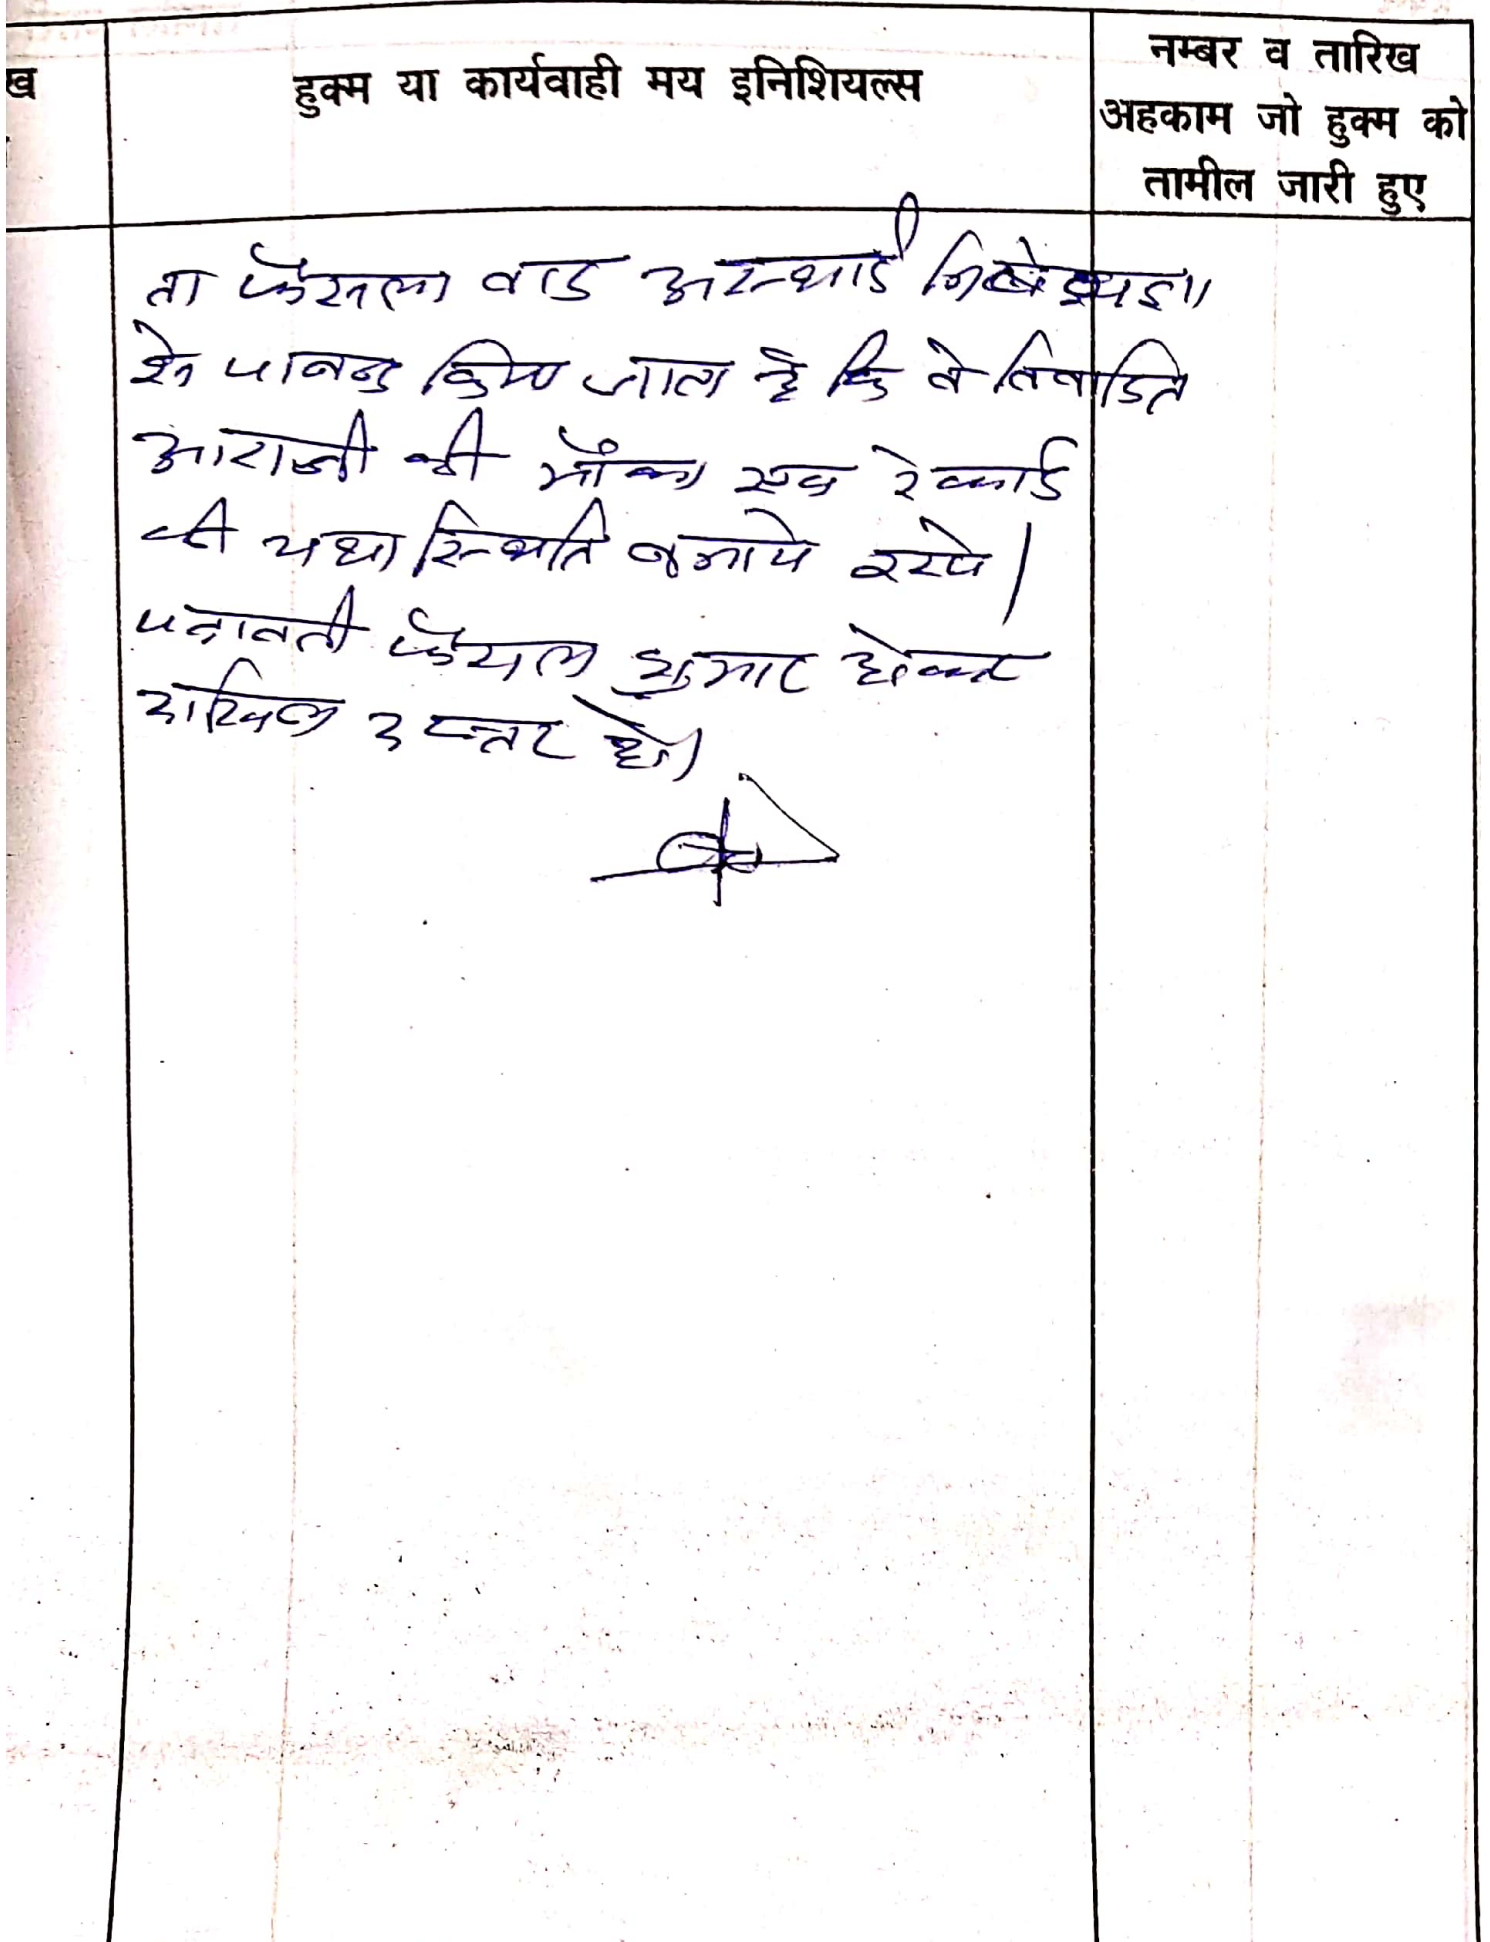 ख
हुक्म या कार्यवाही मय इनिशियल्स
नम्बर व तारिख
अहकाम जो हुक्म को
तामील जारी हुए
ता फैसला वाद अस्थाई निषेधाज्ञा
से पाबन्द किया जाता है कि वे विवादित
आराजी की मौका एवं रेकार्ड
की यथास्थिति बनाये रखे।
पत्रावली फैसल शुमार होकर
दाखिल दफ्तर हो।